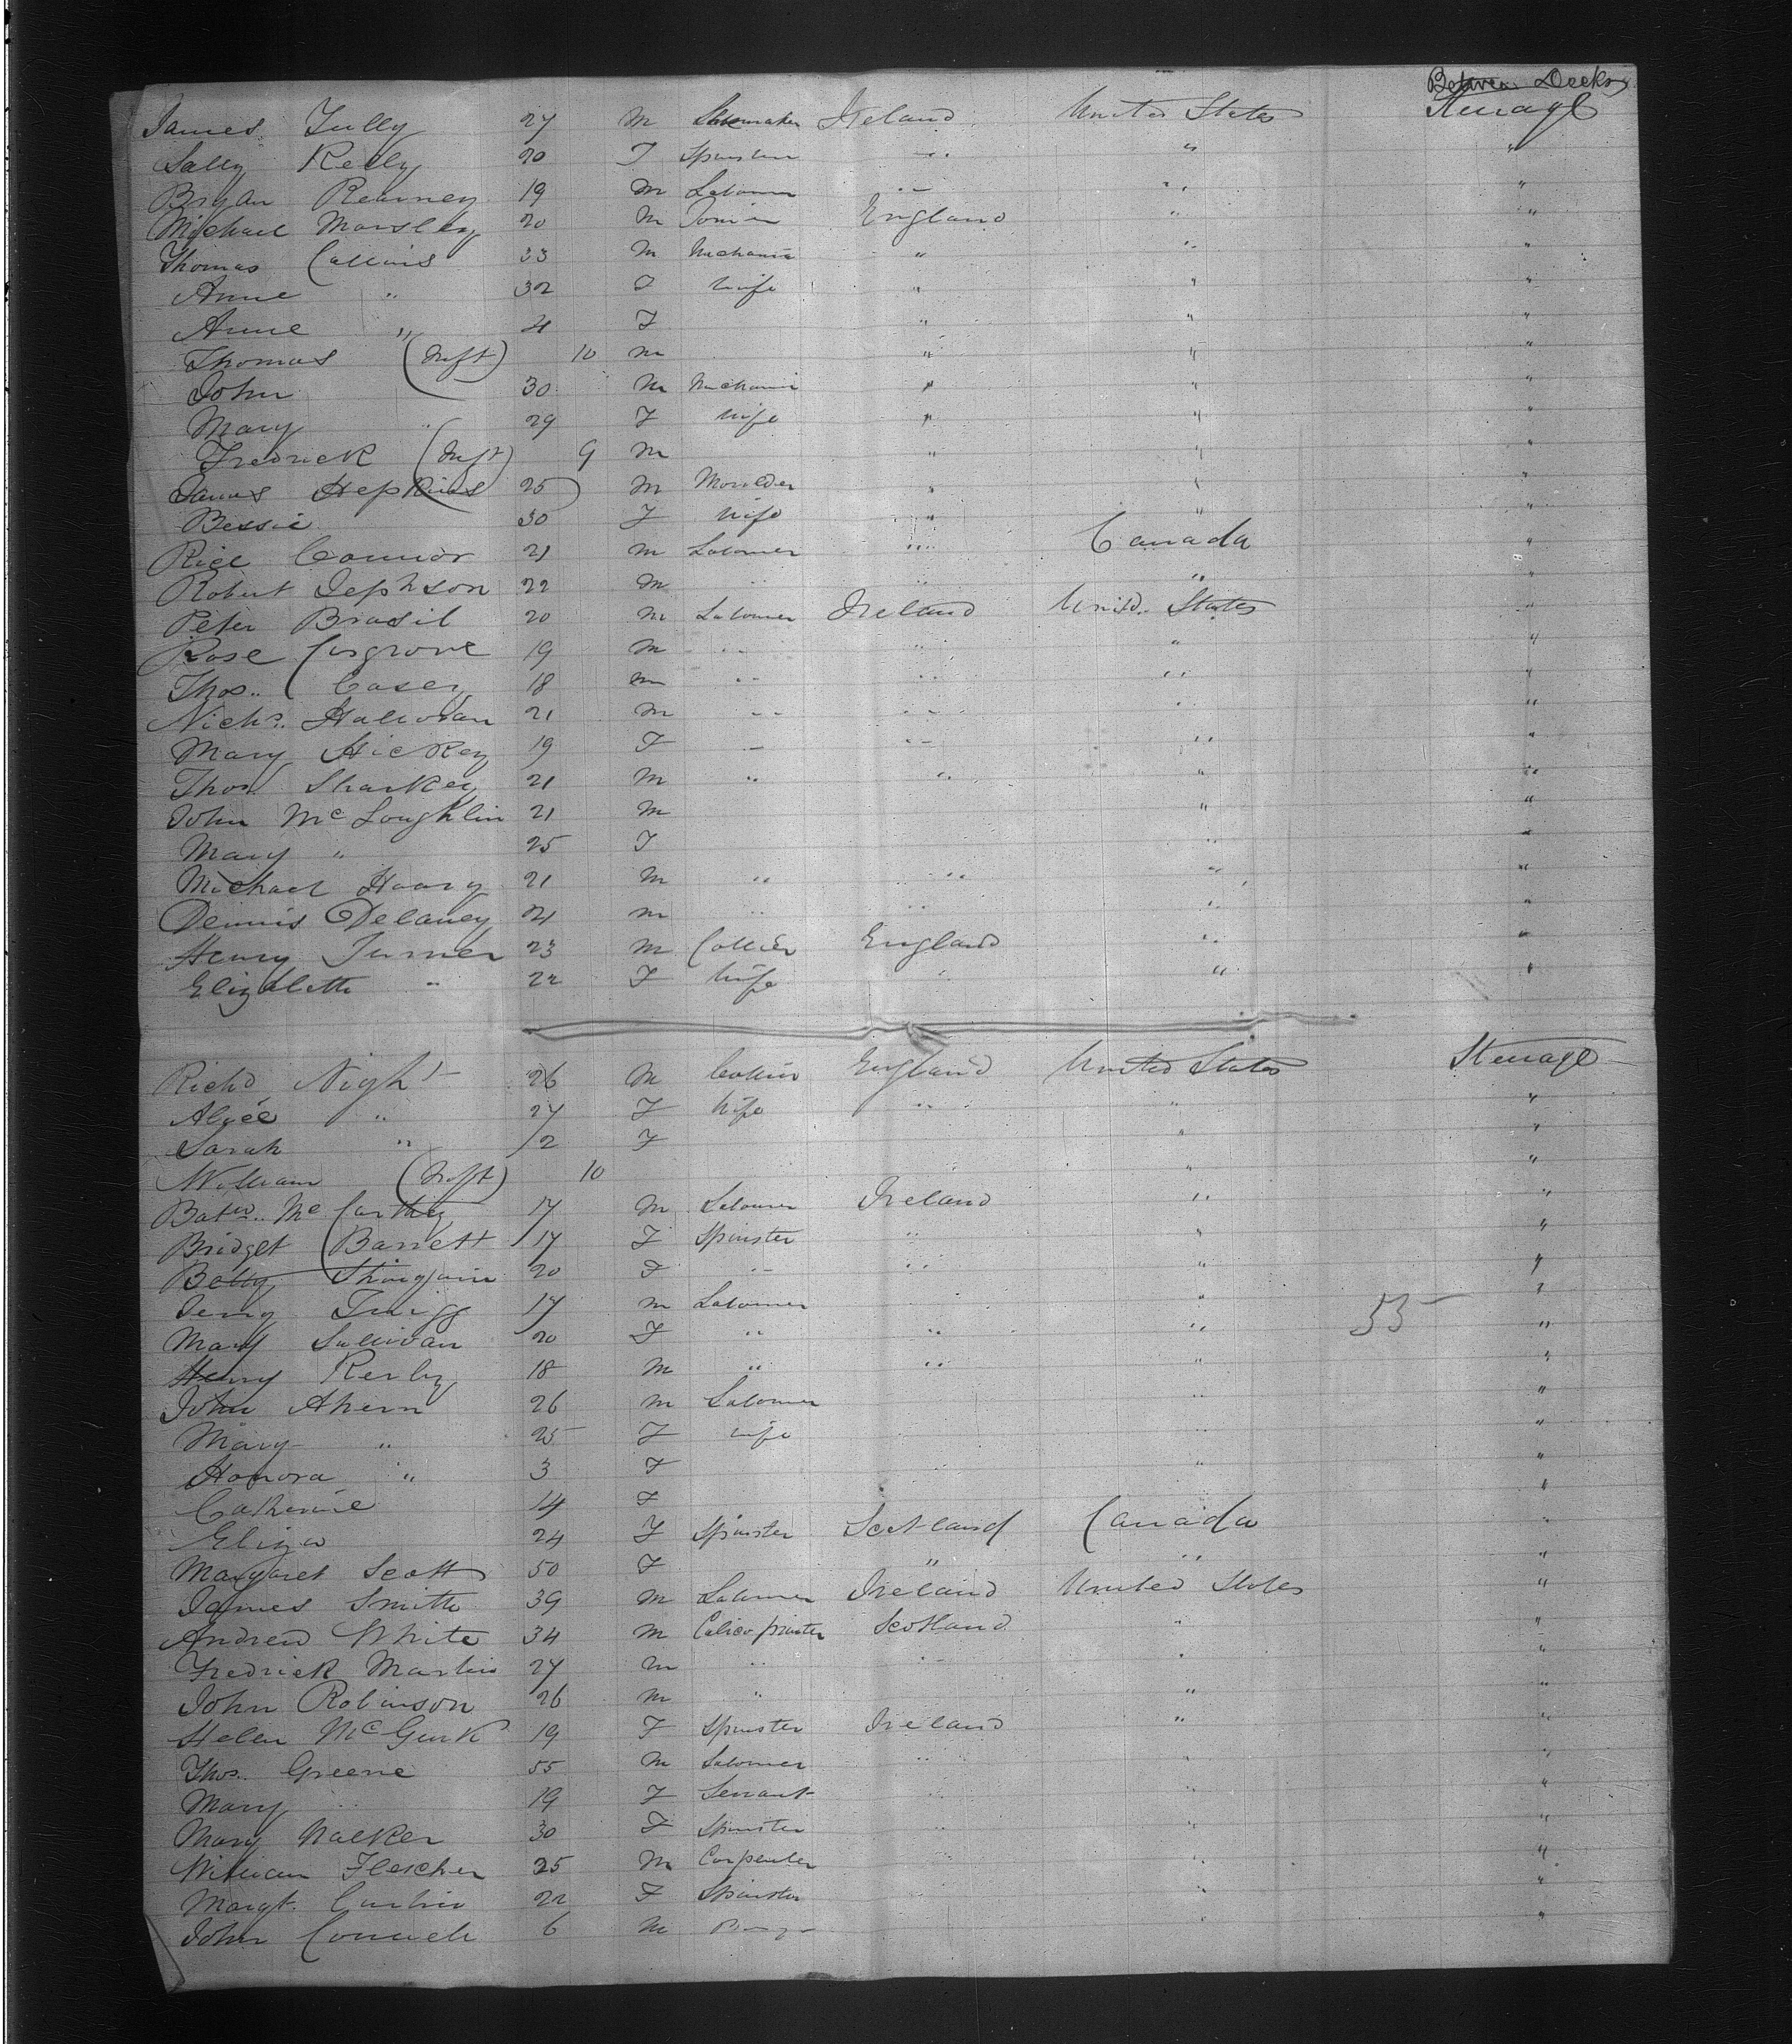 Between Decks
James Tully 27 M Shoemaker Ireland United States Steerage
Sally Reilly 20 F Spinster " " "
Bryan Kearney 19 M Labourer " " "
Michael Morsley 20 M England " "
Thomas Collins 33 M Mechanic " " "
Anne " 32 F Wife " " "
Anne " 4 F " " "
Thomas (Inft) 10 M " " "
John 30 M Mechanic " " "
Mary " 29 F Wife " " "
Fredrick (Inft) 9 M " " "
James Hopkins 25 M Moulder " " "
Bessie 30 F Wife " " "
Rice Connor 21 M Labourer " Canada "
Robert Jephson 22 M " " " "
Peter Brasil 20 M Labourer Ireland Unitd States "
Rose Cosgrove 19 M " " " "
Thos. Casey 18 M " " " "
Nichs. Halloran 21 M " " " "
Mary Hickey 19 F " " " "
Thos. Sharkey 21 M " " " "
John McLoughlin 21 M " "
Mary " 25 F " "
Michael Hoary 21 M " " " "
Dennis Delaney 21 M " " " "
Henry Turner 23 M Collier England " "
Elizabeth " 22 F Wife " " "
Richd Night 26 M Collier England United States Steerage
Alice " 27 F Wife " " "
Sarah " 2 F " "
William (Inft) 10 " " "
McCarthy 17 M Labourer Ireland " "
Bridget Barrett 17 F Spinster " " "
Betty 20 F " " " "
Jerry Twigg 17 M Labourer " " "
Mary Sullivan 20 F " " " 55 "
Henry Kerby 18 M " " " "
John Ahern 26 M Labourer " "
Mary " 25 F Wife " "
Honora " 3 F " "
Catherine 14 F "
Eliza 24 F Spinster Scotland Canada "
Margaret Scott 50 F " " "
James Smith 39 M Labourer Ireland United States "
Andrew White 34 M Calico printer Scotland " "
Fredrick Martin 27 M " " " "
John Robinson 26 M " " "
Helen McGurk 19 F Spinster Ireland " "
Thos. Greene 55 M Labourer " " "
Mary " 19 F Servant " " "
Mary Walker 30 F Spinster " " "
William Flescher 25 M Carpenter " " "
Margt. 22 F Spinster " "
John 6 M " "